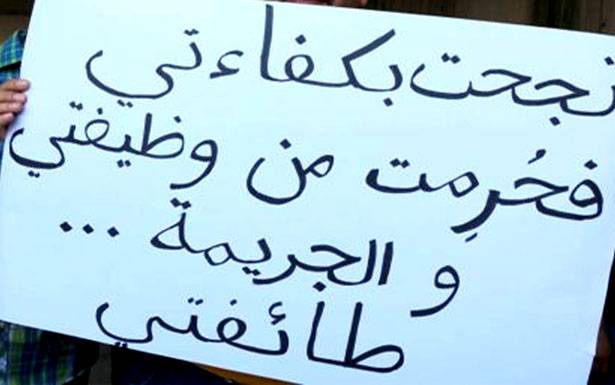 نجحت بكفاءتي
فحُرِمت من وظيفتي
و الجريمة ...
طائفتي